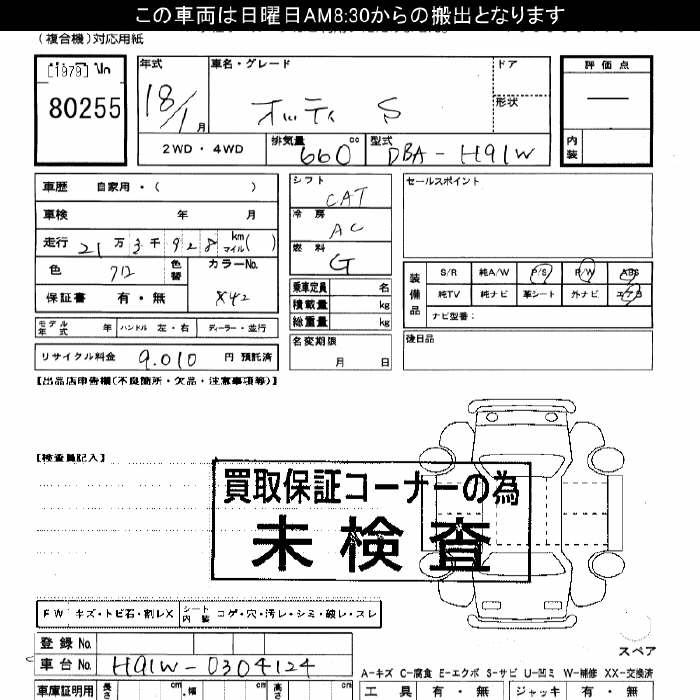 この車両は日曜日AM8:30からの搬出となります
(複合機)対応用紙
[1979]
80255
年式 18/1月
車名・グレード オッティ S
ドア
形状
評価点 —
内装
2WD・4WD
排気量 660 cc
型式 DBA-H91W
車歴 自家用・( )
車検 年 月
走行 21万3千928 km マイル( )
色
色替
カラーNo. X42
保証書 有・無
シフト CAT
冷房 AC
燃料 G
乗車定員 名
積載量 kg
総重量 kg
セールスポイント
装備品 S/R 純A/W P/S P/W ABS
純TV 純ナビ 革シート 外ナビ エアB
ナビ型番:
モデル年式 年 ハンドル 左・右 ディーラー・並行
名変期限 月 日
後日品
リサイクル料金 9,010 円 預託済
【出品店申告欄(不良箇所・欠品・注意事項等)】
【検査員記入】
買取保証コーナーの為
未検査
FW キズ・トビ石・割レX シート内装 コゲ・穴・汚レ・シミ・破レ・スレ
登録No.
車台No. H91W-0304124
スペア
A-キズ C-腐食 E-エクボ S-サビ U-凹ミ W-補修 XX-交換済
車庫証明用 長さ cm 幅 cm 高さ cm
工具 有・無 ジャッキ 有・無